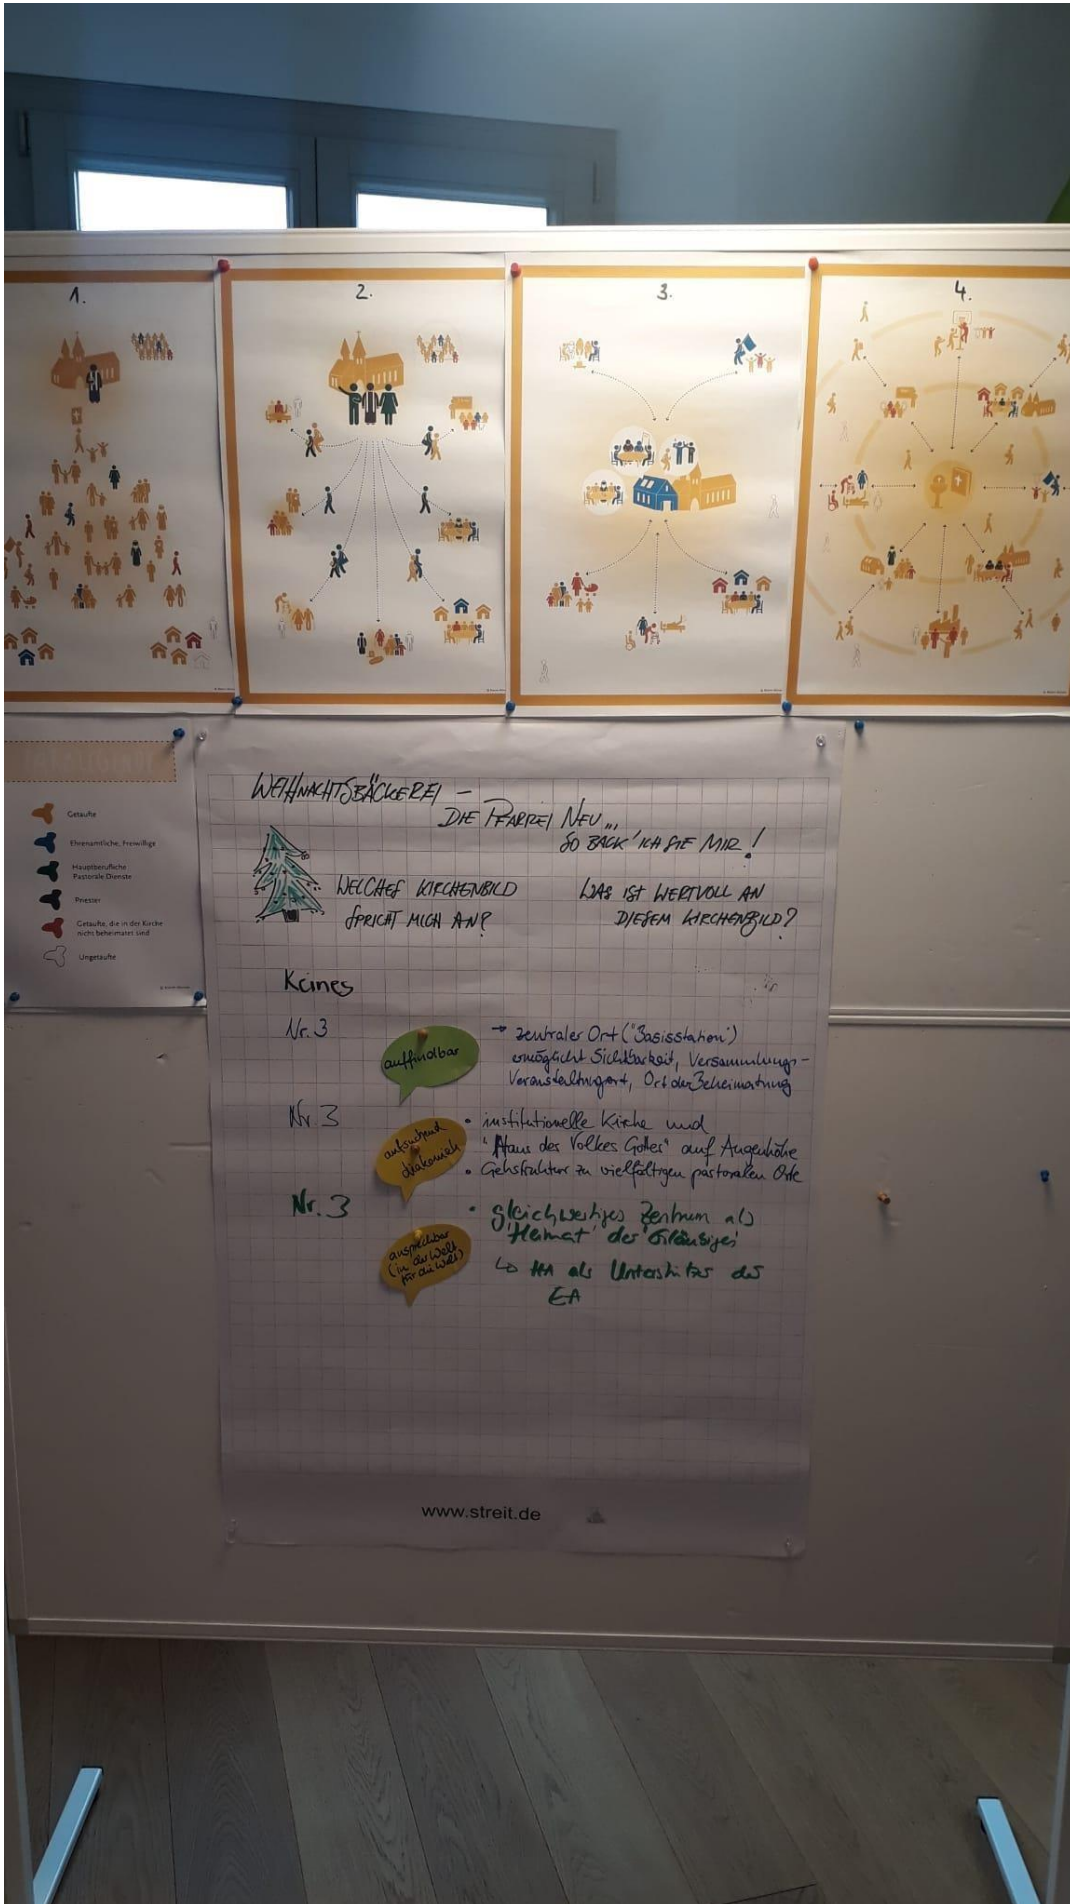 1.
2.
3.
4.
Getaufte
Ehrenamtliche, Freiwillige
Hauptberufliche
Pastorale Dienste
Priester
Getaufte, die in der Kirche
nicht beheimatet sind
Ungetaufte
WEIHNACHTSBÄCKEREI -
DIE PFARREI NEU...
SO BACK' ICH SIE MIR!
WELCHES KIRCHENBILD
SPRICHT MICH AN?
WAS IST WERTVOLL AN
DIESEM KIRCHENBILD?
Keines
Nr. 3
auffindbar
→ zentraler Ort ("Basisstation")
ermöglicht Sichtbarkeit, Versammlungs-
Veranstaltungsort, Ort der Beheimatung
Nr 3
aufsuchend
diakonisch
• institutionelle Kirche und
"Haus des Volkes Gottes" auf Augenhöhe
• Gehstruktur zu vielfältigen pastoralen Orte
Nr. 3
ansprechbar
(in der Welt
für die Welt)
• gleichwertiges Zentrum als
'Heimat' der Gläubigen
↳ HA als Unterstützer der
EA
www.streit.de